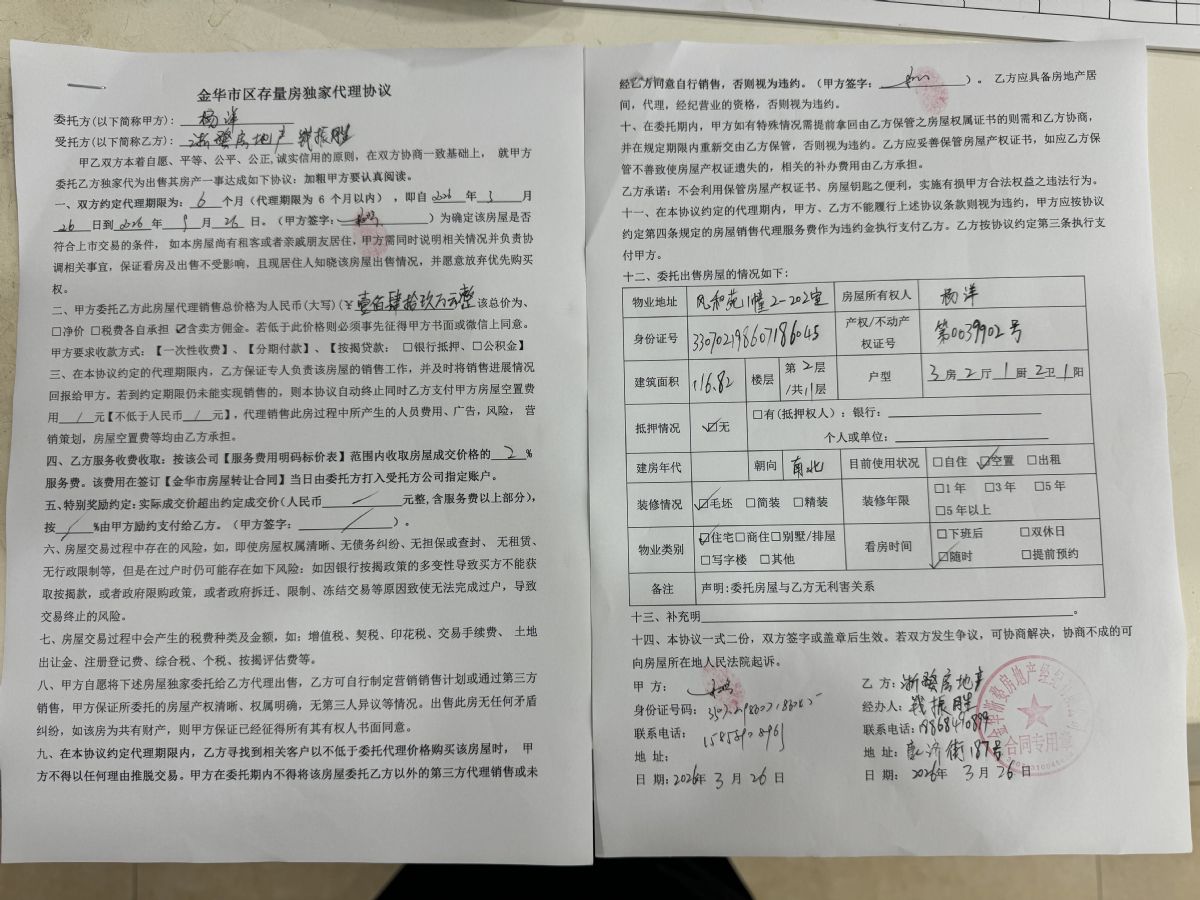 金华市区存量房独家代理协议
委托方(以下简称甲方): 杨洋
受托方(以下简称乙方): 浙婺房地产 钱振胜
甲乙双方本着自愿、平等、公平、公正,诚实信用的原则,在双方协商一致基础上, 就甲方
委托乙方独家代为出售其房产一事达成如下协议:加粗甲方要认真阅读。
一、双方约定代理期限为: 6 个月(代理期限为 6 个月以内) ,即自 2026 年 3 月
26 日到 2026 年 9 月 26 日。(甲方签字: )为确定该房屋是否
符合上市交易的条件, 如本房屋尚有租客或者亲戚朋友居住,甲方需同时说明相关情况并负责协
调相关事宜,保证看房及出售不受影响,且现居住人知晓该房屋出售情况,并愿意放弃优先购买
权。
二、甲方委托乙方此房屋代理销售总价格为人民币(大写)(¥ 壹佰肆拾玖万元整 该总价为、
□净价 □税费各自承担 ☑含卖方佣金。若低于此价格则必须事先征得甲方书面或微信上同意。
甲方要求收款方式:【一次性收费】、【分期付款】、【按揭贷款: □银行抵押、□公积金】
三、在本协议约定的代理期限内,乙方保证专人负责该房屋的销售工作,并及时将销售进展情况
回报给甲方。若到约定期限仍未能实现销售的,则本协议自动终止同时乙方支付甲方房屋空置费
用 / 元【不低于人民币 / 元】,代理销售此房过程中所产生的人员费用、广告,风险, 营
销策划,房屋空置费等均由乙方承担。
四、乙方服务收费收取:按该公司【服务费用明码标价表】范围内收取房屋成交价格的 2 %
服务费。该费用在签订【金华市房屋转让合同】当日由委托方打入受托方公司指定账户。
五、特别奖励约定:实际成交价超出约定成交价(人民币 / 元整,含服务费以上部分),
按 / %由甲方励约支付给乙方。(甲方签字: / )。
六、房屋交易过程中存在的风险,如,即使房屋权属清晰、无债务纠纷、无担保或查封、 无租赁、
无行政限制等,但是在过户时仍可能存在如下风险:如因银行按揭政策的多变性导致买方不能获
取按揭款,或者政府限购政策,或者政府拆迁、限制、冻结交易等原因致使无法完成过户,导致
交易终止的风险。
七、房屋交易过程中会产生的税费种类及金额,如:增值税、契税、印花税、交易手续费、 土地
出让金、注册登记费、综合税、个税、按揭评估费等。
八、甲方自愿将下述房屋独家委托给乙方代理出售,乙方可自行制定营销销售计划或通过第三方
销售,甲方保证所委托的房屋产权清晰、权属明确,无第三人异议等情况。出售此房无任何矛盾
纠纷,如该房为共有财产,则甲方保证已经征得所有其有权人书面同意。
九、在本协议约定代理期限内,乙方寻找到相关客户以不低于委托代理价格购买该房屋时, 甲
方不得以任何理由推脱交易。甲方在委托期内不得将该房屋委托乙方以外的第三方代理销售或未
经乙方同意自行销售,否则视为违约。(甲方签字: )。 乙方应具备房地产居
间,代理,经纪营业的资格,否则视为违约。
十、在委托期内,甲方如有特殊情况需提前拿回由乙方保管之房屋权属证书的则需和乙方协商,
并在规定期限内重新交由乙方保管,否则视为违约。乙方应妥善保管房屋产权证书,如应乙方保
管不善致使房屋产权证遗失的,相关的补办费用由乙方承担。
乙方承诺:不会利用保管房屋产权证书、房屋钥匙之便利,实施有损甲方合法权益之违法行为。
十一、在本协议约定的代理期内,甲方、乙方不能履行上述协议条款则视为违约,甲方应按协议
约定第四条规定的房屋销售代理服务费作为违约金执行支付乙方。乙方按协议约定第三条执行支
付甲方。
十二、委托出售房屋的情况如下:
物业地址 风和苑11幢2-202室 房屋所有权人 杨洋
身份证号 330702198607186045 产权/不动产权证号 第0039902号
建筑面积 116.82 楼层 第2层/共11层 户型 3房2厅1厨2卫1阳
抵押情况 ☑无 □有(抵押权人):银行:
个人或单位:
建房年代 朝向 南北 目前使用状况 □自住 ☑空置 □出租
装修情况 ☑毛坯 □简装 □精装 装修年限 □1年 □3年 □5年
□5年以上
物业类别 ☑住宅□商住□别墅/排屋 看房时间 □下班后 □双休日
□写字楼 □其他 ☑随时 □提前预约
备注 声明:委托房屋与乙方无利害关系
十三、补充明 。
十四、本协议一式二份,双方签字或盖章后生效。若双方发生争议,可协商解决,协商不成的可
向房屋所在地人民法院起诉。
甲 方: 乙 方:浙婺房地产
身份证号码: 经办人:钱振胜
联系电话: 联系电话:
地 址: 地 址:
日 期:2026年 3 月 26 日 日 期:2026年 3 月 26 日
合同专用章